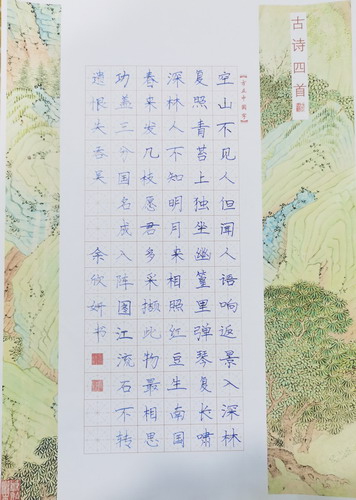 古诗四首
空山不见人但闻人语响返景入深林
复照青苔上独坐幽篁里弹琴复长啸
深林人不知明月来相照红豆生南国
春来发几枝愿君多采撷此物最相思
功盖三分国名成八阵图江流石不转
遗恨失吞吴 余欣妍书